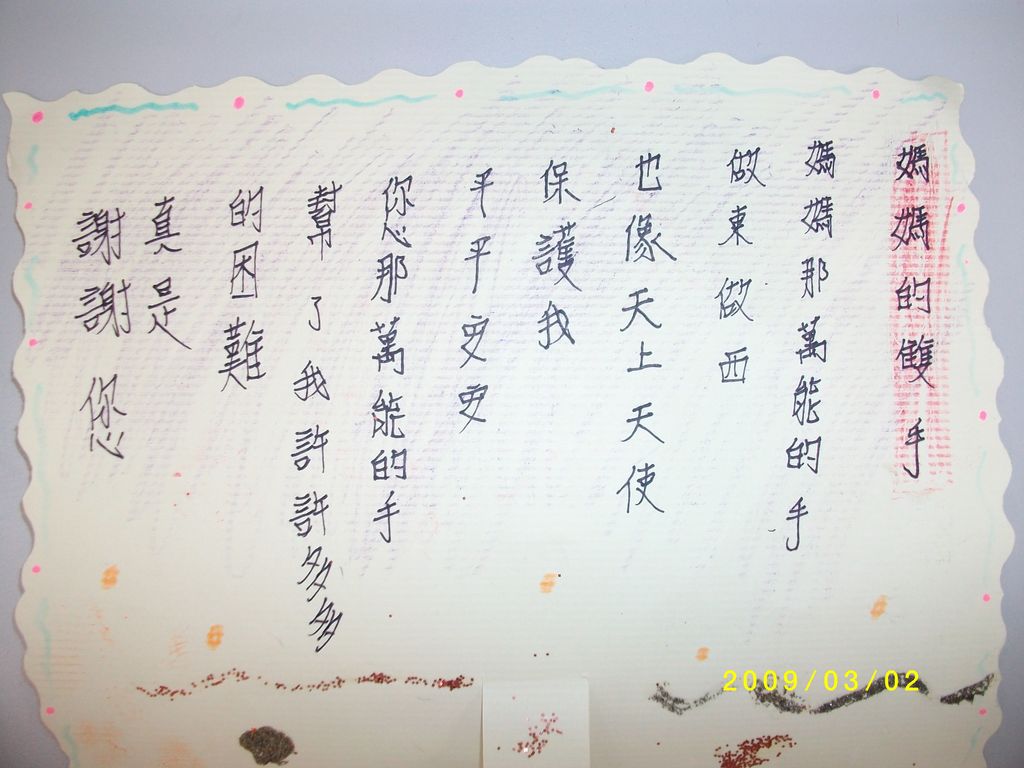 媽媽的雙手
媽媽那萬能的手
做東做西
也像天上天使
保護我
平平安安
您那萬能的手
幫了我許許多多
的困難
真是
謝謝您
2009/03/02